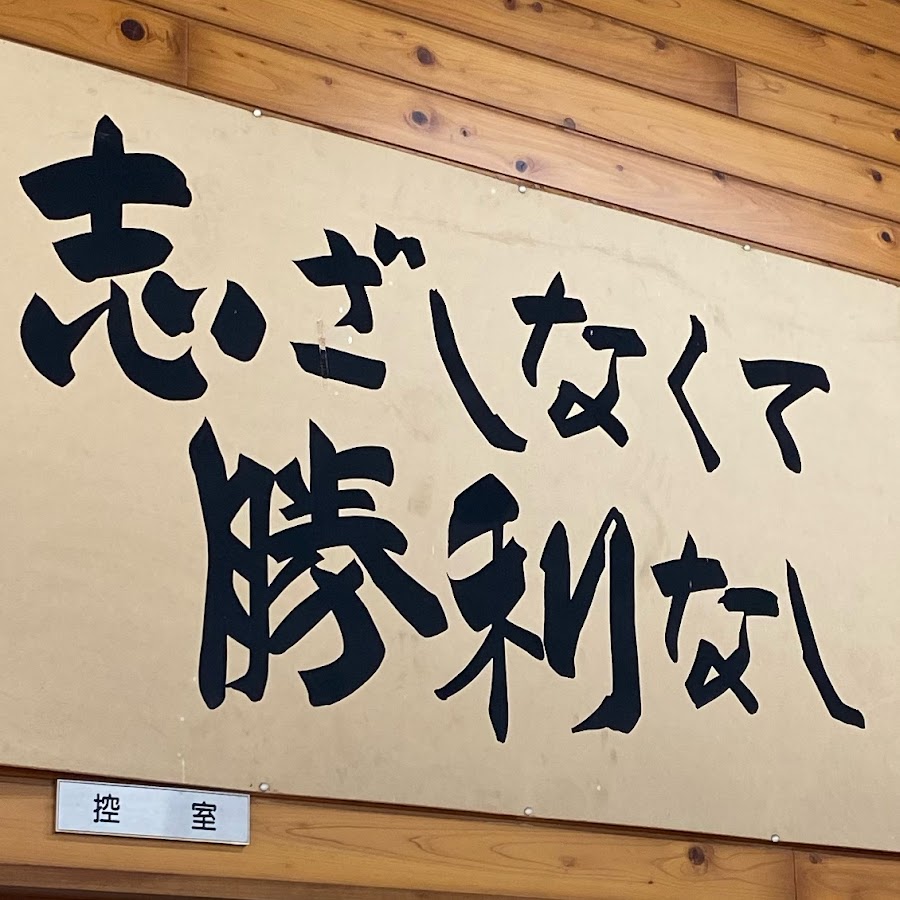 志ざしなくて
勝利なし
控 室